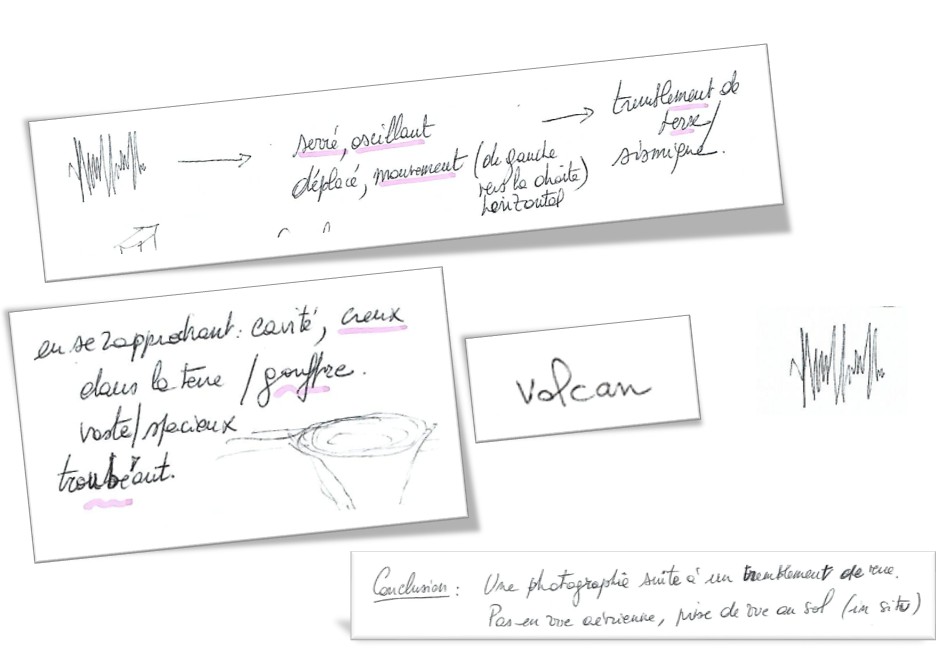 serré, oscillant
déplacé, mouvement (de gauche
vers la droite)
horizontal
tremblement de
terre/
sismique.
en se rapprochant: cavité, creux
dans la terre / gouffre.
vaste/spacieux
volcan
Conclusion: Une photographie suite à un tremblement de terre.
Pas en vue aérienne, prise de vue au sol (in situ)